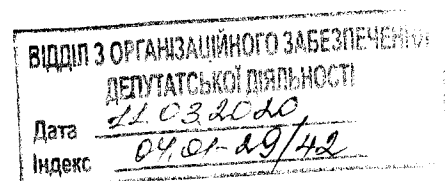 ВІДДІЛ З ОРГАНІЗАЦІЙНОГО ЗАБЕЗПЕЧЕННЯ
ДЕПУТАТСЬКОЇ ДІЯЛЬНОСТІ
Дата 11.03.2020
Індекс 04.01-29/42